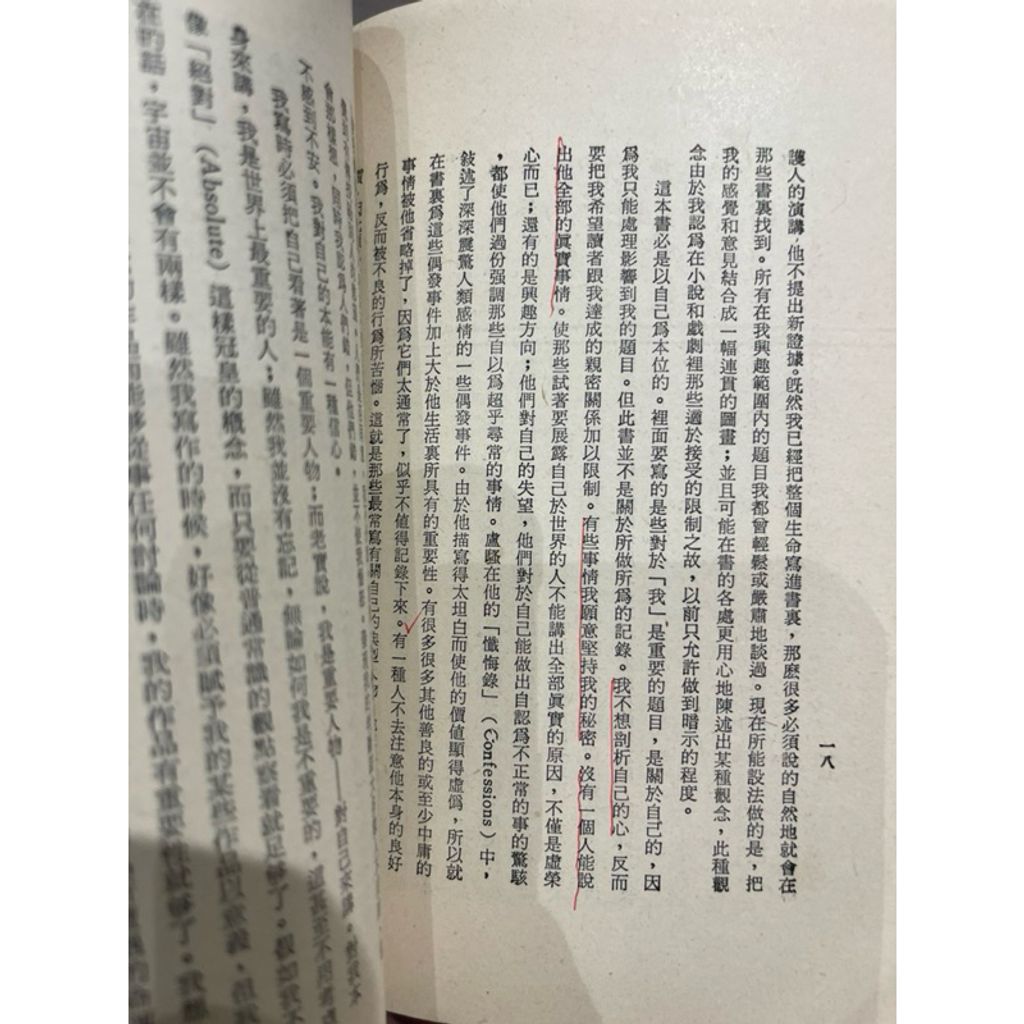 護人的演講，他不提出新證據。既然我已經把整個生命寫進書裏，那麼很多必須說的自然地就會在
那些書裏找到。所有在我興趣範圍內的題目我都曾輕鬆或嚴肅地談過。現在所能設法做的是，把
我的感覺和意見結合成一幅連貫的圖畫；並且可能在書的各處更用心地陳述出某種觀念，此種觀
念由於我認爲在小說和戲劇裡那些適於接受的限制之故，以前只允許做到暗示的程度。
這本書必是以自己爲本位的。裡面要寫的是些對於「我」是重要的題目，是關於自己的，因
爲我只能處理影響到我的題目。但此書並不是關於所做所爲的記錄。我不想剖析自己的心，反而
要把我希望讀者跟我達成的親密關係加以限制。有些事情我願意堅持我的秘密。沒有一個人能說
出他全部的眞實事情。使那些試著要展露自己於世界的人不能講出全部眞實的原因，不僅是虛榮
心而已；還有的是興趣方向；他們對自己的失望，他們對於自己能做出自認爲不正常的事的驚駭
，都使他們過份强調那些自以爲超乎尋常的事情。盧騷在他的「懺悔錄」（Confessions）中，
敍述了深深震驚人類感情的一些偶發事件。由於他描寫得太坦白而使他的價値顯得虛僞，所以就
在書裏爲這些偶發事件加上大於他生活裏所具有的重要性。有很多很多其他善良的或至少中庸的
事情被他省略掉了，因爲它們太通常了，似乎不値得記錄下來。有一種人不去注意他本身的良好
行爲，反而被不良的行爲所苦惱。這就是那些最常寫有關自己的
一八
不感到不安。我對自己的本能有一種信心。
我寫時必須把自己看著是一個重要人物；而老實說，我是重要人物——對自己來講。
身來講，我是世界上最重要的人；雖然我並沒有忘記，無論如何我是不重要的，
像「絕對」（Absolute）這樣冠皇的概念，而只要從普通常識的觀點察看就足够了。
在的話，宇宙並不會有兩樣。雖然我寫作的時候，好像必須賦予我的某些作品以意義，
從事任何討論時，我的作品有重要性就够了。